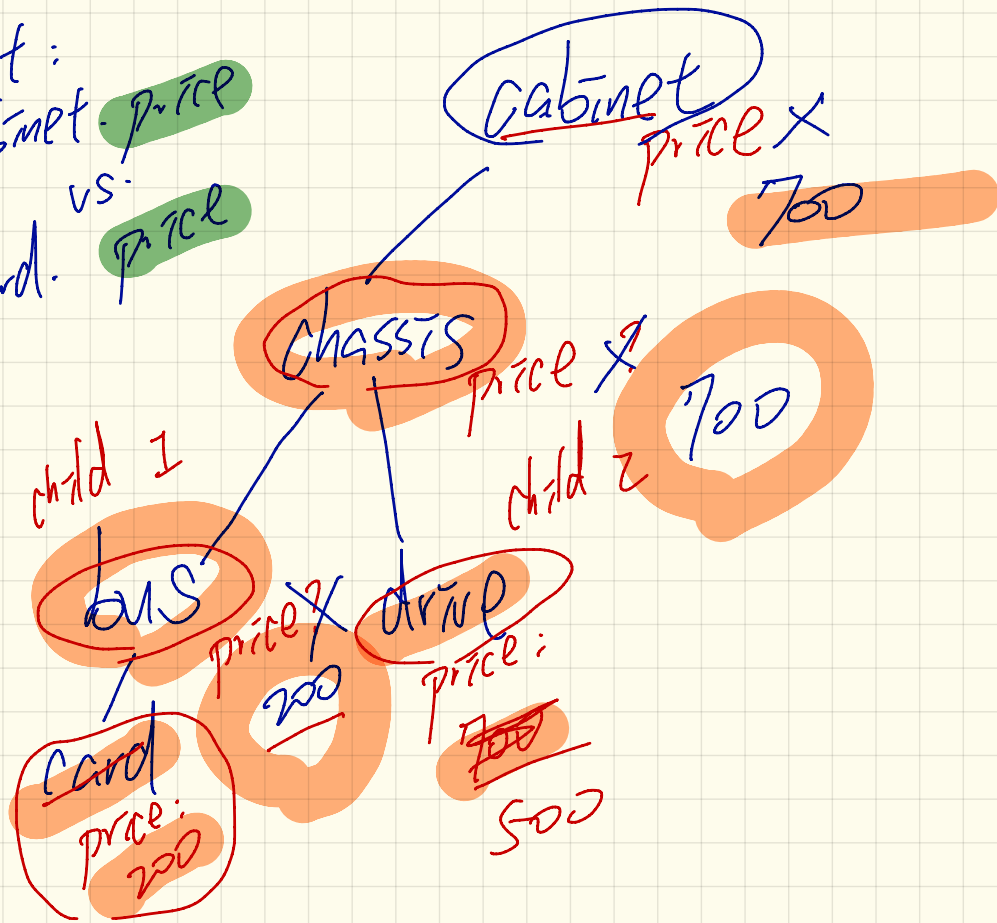 t:
inet. price
vs.
rd. price
cabinet
price X
700
chassis
price ? X
700
child 1
child 2
bus
price? X
200
drive
price:
700
500
card
price:
200